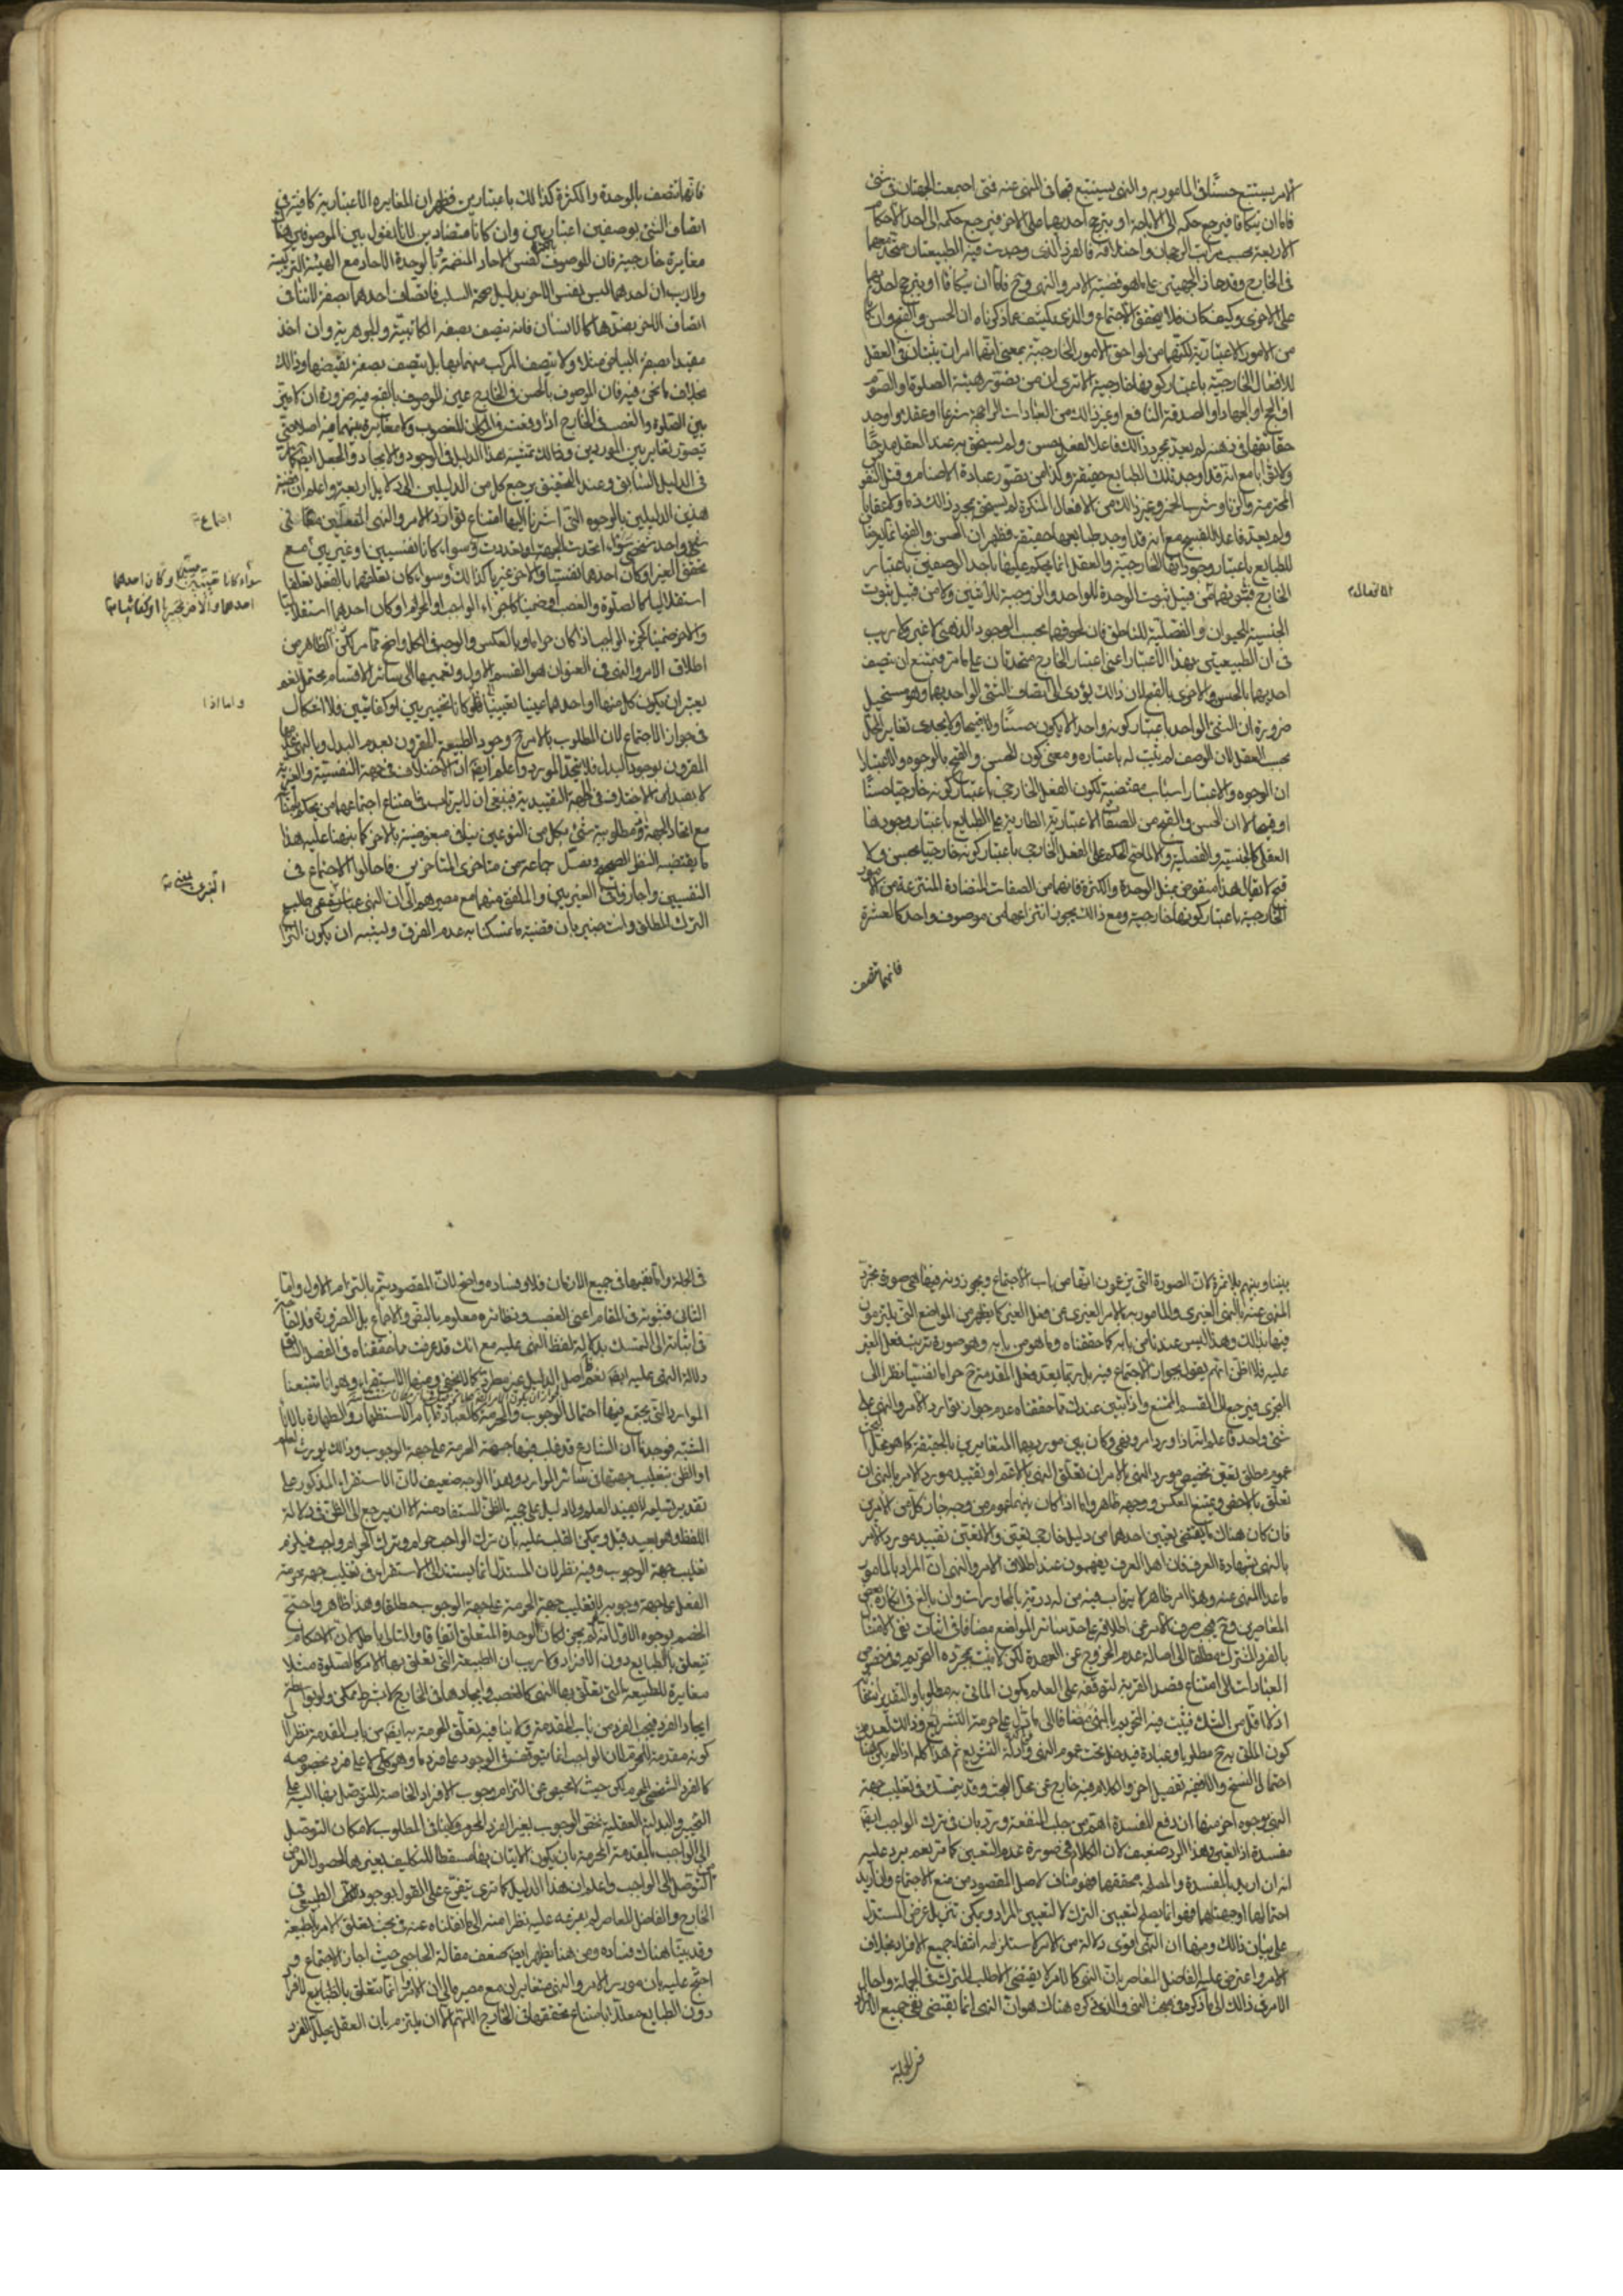 الامر يستتبع حسنا في المامور به والنهى يستتبع قبحا في المنهى عنه فمتى اجتمعت الجهتان في شئ
فاما ان يتكافا فيرجع حكمه الى الاباحة او يترجح احديهما على الاخرى فيرجع حكمه الى احد الاحكام
الاربعة بحسب مراتب الرجحان واختلافه فالفرد الذى وجدت فيه الطبيعتان متحد معهما
في الخارج وقد حاز الجهتين على ما هو قضية الامر والنهى وح فاما ان يتكافأا او يترجح احديهما
على الاخرى وكيف كان فلا يتحقق الاجتماع والذى يكشف عما ذكرناه ان الحسن والقبح وان كانا
من الامور الاعتبارية لكنهما من لواحق الامور الخارجية بمعنى انهما امران يثبتان في العقل
للافعال الخارجية باعتبار كونها خارجية الا ترى ان من يتصور هيئة الصلوة او الصوم
او الحج او الجهاد او الصدقة النافع او غير ذلك من العبادات الراجحة شرعا او عقلا واوجد
حقائقها في ذهنه لم يعد بمجرد ذلك فاعلا لفعل حسن ولم يستحق به عند العقل مدحا
ولا ثوابا مع انه قد اوجد تلك الطبايع حقيقة وكذا من يتصور عبادة الاصنام وقتل النفس
المحترمة والزنا وشرب الخمر وغير ذلك من الافعال المنكرة لم يستحق بمجرد ذلك ذما ولا عقابا
ولم يعد فاعلا للقبيح مع انه قد اوجد طبايعها حقيقة فظهر ان الحسن والقبح انما يعرضان
للطبايع باعتبار وجوداتها الخارجية والعقل انما يحكم عليها باحد الوصفين باعتبار
الخارج فثبوتهما من قبيل ثبوت الوحدة للواحد والزوجية للاثنين ولا من قبيل ثبوت
الجنسية للحيوان والفصلية للناطق فان لحوقهما بحسب الوجود الذهنى لا غير ولا ريب
في ان الطبيعتين بهذا الاعتبار اعنى اعتبار الخارج متحدتان على ما مر فيمتنع ان يتصف
احديهما بالحسن والاخرى بالقبح لان ذلك يؤدى الى اتصاف الشئ الواحد بهما وهو مستحيل
ضرورة ان الشئ الواحد باعتبار كونه واحدا لا يكون حسنا ولا قبيحا ولا يجدى تغاير المحل
بحسب العقل لان الوصف لم يثبت له باعتباره ومعنى كون الحسن والقبح بالوجوه والاعتبار
ان الوجوه والاعتبار اسباب مقتضية لكون الفعل الخارجى باعتبار كونه خارجيا حسنا
او قبيحا لا ان الحسن والقبح من الصفات الاعتبارية الطارية على الطبايع باعتبار وجودها
العقلى كالجنسية والفصلية والا لما صح الحكم على الفعل الخارجى باعتبار كونه خارجيا بحسن ولا
قبح لا يقال هذا منقوض بمثل الوحدة والكثرة فانهما من الصفات المتضادة المنتزعة من الامور
الخارجية باعتبار كونها خارجية ومع ذلك يجوز انتزاعهما من موصوف واحد كالعشرة
فانها تتصف
فانها تتصف بالوحدة والكثرة كذلك باعتبارين فظهر ان المغايرة الاعتبارية كافية في
اتصاف الشئ بوصفين اعتباريين وان كانا متضادين لانا نقول بين الموصوفين هنا
مغايرة خارجية فان الموصوف بالكثرة نفس الاحاد المنضمة وبالوحدة الاحاد مع الهيئة التركيبية
ولا ريب ان احدهما ليس نفس الاخر بدليل صحة السلب فاتصاف احدهما بصفة لا ينافى
اتصاف الاخر بضدها كالانسان فانه يتصف بصفة الكاتبية والجوهرية وان اخذ
مقيدا بصفة البياض مثلا ولا يتصف المركب منهما بها بل يتصف بصفة نقيضها وذلك
بخلاف ما نحن فيه فان الموصوف بالحسن في الخارج عين الموصوف بالقبح فيه ضرورة ان لا ميز
بين الصلوة والغصب في الخارج اذا وقعت في المكان المغصوب ولا مغايرة بينهما فيه اصلا حتى
يتصور تغاير بين الموردين وذلك تمشية هذا الدليل في الوجود والايجاد والجعل ايضا كما مرت
في الدليل السابق وعند التحقيق يرجع كل من الدليلين الى دلايل اربعة واعلم ان قضية
هذين الدليلين بالوجوه التى اشرنا اليها امتناع توارد الامر والنهى الفعليين معا في
شئ واحد شخصى سواء اتحدت الجهة او تعددت وسواء كانا نفسيين او غيريين مع
تحقق الغير او كان احدهما نفسيا والاخر غيريا كذلك وسواء كان تعلقهما بالفعل تعلقا
استقلاليا كالصلوة والغصب او ضمنيا كاجزاء الواجب او الحرام او كان احدهما استقلاليا
والاخر ضمنيا كجزء الواجب اذا كان حراما وبالعكس والوجه في الكل واضح مما مر لكن الظاهر من
اطلاق الامر والنهى في العنوان هو القسم الاول وتعميمها الى سائر الاقسام محتمل نعم
يعتبر ان يكون كل منهما او احدهما عينيا تعيينيا فلو كانا تخييريين او كفائيين فلا اشكال
في جواز الاجتماع لان المطلوب بالامر ح وجود الطبيعة المقرون بعدم البدل وبالنهى عدمها
المقرون بوجود البدل فلا يتحد المورد واعلم ايضا ان الاختلاف في جهة النفسية والغيرية
لا يفيد الاختلاف في الجهة التقييدية فينبغى ان لا يرتاب في امتناع اجتماعهما من يحكم بامتناعه
مع اتحاد الجهة ومطلوبية شئ بكل من النوعين ينافى مبغوضية بالاخر كما نبهنا عليه هذا
ما يقتضيه النظر الصحيح وفصل جماعة من متاخرى المتاخرين فاحالوا الاجتماع في
النفسيين واجازوا في الغيريين والملفق منهما مع مصيرهم الى ان النهى عبارة عن طلب
الترك المطلق وانت خبير بان قضية ما تمسكنا به عدم الفرق ويشبه ان يكون النزاع
بيننا وبينهم بلا ثمرة لان الصورة التى يزعمون انها من باب الاجتماع ويجوزونه فيها هى صورة تجرد
المنهى عنه بالنهى الغيرى والمامور به بالامر الغيرى عن فعل الغير كما يظهر من المواضع التى يلتزمون
فيها بذلك وهذا ليس عندنا من بابه كما حققناه وما هو من بابه وهو صورة ترتب فعل الغير
عليه فلا اظن انهم يقولون بجواز الاجتماع فيه بل ربما يعد فعل المقدمة ح حراما نفسيا نظرا الى
التجرى فيرجع الى القسم الممتنع واذا تبين عندك مما حققناه عدم جواز توارد الامر والنهى على
شئ واحد فاعلم انه اذا ورد امر ونهى وكان بين مورديهما المتغايرين بالحقيقة كما هو محل البحث
عموم مطلق تعين تخصيص مورد النهى بالامر ان تعلق النهى بالاعم او تقييد مورد الامر بالنهى ان
تعلق بالاخص ويمتنع العكس ووجهه ظاهر واما اذا كان بينهما عموم من وجه جاز كل من الامرين
فان كان هناك ما يقتضى تعيين احدهما من دليل خارجى تعين والا تعين تقييد مورد الامر
بالنهى بشهادة العرف فان اهل العرف يفهمون عند اطلاق الامر والنهى ان المراد بالمامور
ما عدا المنهى عنه وهذا امر ظاهر لا يرتاب فيه من له دربة بالمحاورات وان بالغ في انكاره بعض
المعاصرين وح فيجب صرف الامر عن اطلاقه على حد سائر المواضع مضافا في اثبات نفى الامتثال
بالفرد المشترك مطلقا الى اصالة عدم الخروج عن العهدة لكن لا يثبت بمجرده التحريم وفى خصوص
العبادات الى امتناع قصد القربة لتوقفه على العلم بكون الماتى به مطلوبا والتقدير انتفاؤه
اذ لا اقل من الشك فيثبت فيه التحريم بالنهى مضافا الى ما دل على حرمة التشريع وذلك لعدم
كون الملقى به ح مطلوبا وعبادة فيدخل تحت عموم النهى وادلة التشريع ثم هذا كله اذا لم يكن هنا
احتمال النسخ والا ففيه تفصيل اخر والكلام فيه خارج عن محل البحث وقد يتمسك في تغليب جهة
النهى بوجوه اخر منها ان دفع المفسدة اهم من جلب المنفعة ورد بان في ترك الواجب ايضا
مفسدة اذا تعين وهذا الرد ضعيف لان الكلام في صورة عدم التعيين كما مر نعم يرد عليه
انه ان اريد بالمفسدة والمصلحة تحققهما فهو مناف لاصل المقصود من منع الاجتماع وان اريد
احتمالهما او جهتهما فهو انما يصلح لتعيين الترك لا لتعيين المراد ويمكن تنزيل غرض المستدل
على بيان ذلك ومنها ان النهى اقوى دلالة من الامر لاستلزامه انتفاء جميع الافراد بخلاف
الامر واعترض عليه الفاضل المعاصر بان النهى كالامر لا يقتضى الا طلب الترك في الجملة واحال
الامر في ذلك الى ما ذكره في مبحث النهى والذى ذكره هناك هو ان النهى انما يقتضى نفى جميع الافراد
في الجملة
في الجملة واما نفيها في جميع الازمان فلا وفساده واضح لان المقصود يتم بالتزام الاول واما
الثانى فثبوته في المقام اعنى الغصب ونظائره معلوم بالنص والاجماع بل الضرورة فلا حاجة
في اثباته الى التمسك بدلالة لفظ النهى عليه مع انك قد عرفت مما حققناه في الفصل السابق
دلالة النهى عليه ايضا نعم اصل الدليل غير مطرد كما لا يخفى ومنها الاستقراء وهو انا تتبعنا
الموارد التى يجتمع فيها احتمال الوجوب والحرمة كالعبادة في ايام الاستظهار والطهارة بالاناء
المشتبه فوجدنا ان الشارع قد غلب فيها جهة الحرمة على جهة الوجوب وذلك يورث العلم
او الظن بتغليب جهتها في سائر الموارد وهذا الوجه ضعيف لان الاستقراء المذكور على
تقدير تسليمه لا يفيد العلم ولا دليل على حجية الظن المستفاد منه الا ان يرجع الى الظن في دلالة
اللفظ وهو بعيد قيل ويمكن القلب عليه بان ترك الواجب حرام وترك الحرام واجب فيلزم
تغليب جهة الوجوب وفيه نظر لان المستدل انما يستند الى الاستقراء في تغليب جهة حرمة
الفعل على جهة وجوبه لا تغليب جهة الحرمة على جهة الوجوب مطلقا وهذا ظاهر واحتج
الخصم بوجوه الاول انه لو لم يجز لكان لوحدة المتعلق اتفاقا والتالى باطل لان الاحكام
تتعلق بالطبايع دون الافراد ولا ريب ان الطبيعة التى تعلق بها الامر كالصلوة مثلا
مغايرة للطبيعة التى تعلق بها النهى كالغصب وايجادها في الخارج لا بشرط ممكن ولو بواسطة
ايجاد الفرد فيجب الفرد من باب المقدمة ولا ينافيه تعلق الحرمة به ايضا من باب المقدمة نظرا الى
كونه مقدمة للحرام لان الواجب انما يتوقف في الوجود على فرد ما وهو كلى لا على فرد بخصوصه
كالفرد الشخصى المحرم لكن حيث لا محيص عن التزام وجوب الافراد الخاصة للتوصل بها اليه على
التخيير والبدلية العقلية تختص الوجوب بغير الفرد المحرم ولا ينافى المطلوب لامكان التوصل
الى الواجب بالمقدمة المحرمة بان يكون الاتيان بها مسقطا للتكليف بغيرها لحصول الغرض من
التوصل الى الواجب واعلم ان هذا الدليل كما ترى يتفرع على القول بوجود الكلى الطبيعى في
الخارج والفاضل المعاصر لم يفرعه عليه نظرا منه الى ما نقلناه عنه في بحث تعلق الامر بالطبيعة
وقد بينا هناك فساده ومن هنا يظهر ايضا ضعف مقالة الحاجبى حيث اجاز الاجتماع و
احتج عليه بان مورد الامر والنهى متغايران مع مصيره الى ان الامر انما يتعلق بالطبايع لا الافراد
دون الطبايع معللا بامتناع تحققها في الخارج اللهم الا ان يلتزم بان العقل يحلل الفرد